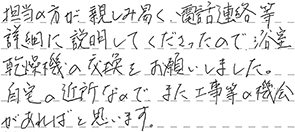 担当の方が親しみ易く、電話連絡等
詳細に説明してくださったので浴室
乾燥機の交換をお願いしました。
自宅の近所なので また工事等の機会
があればと思います。